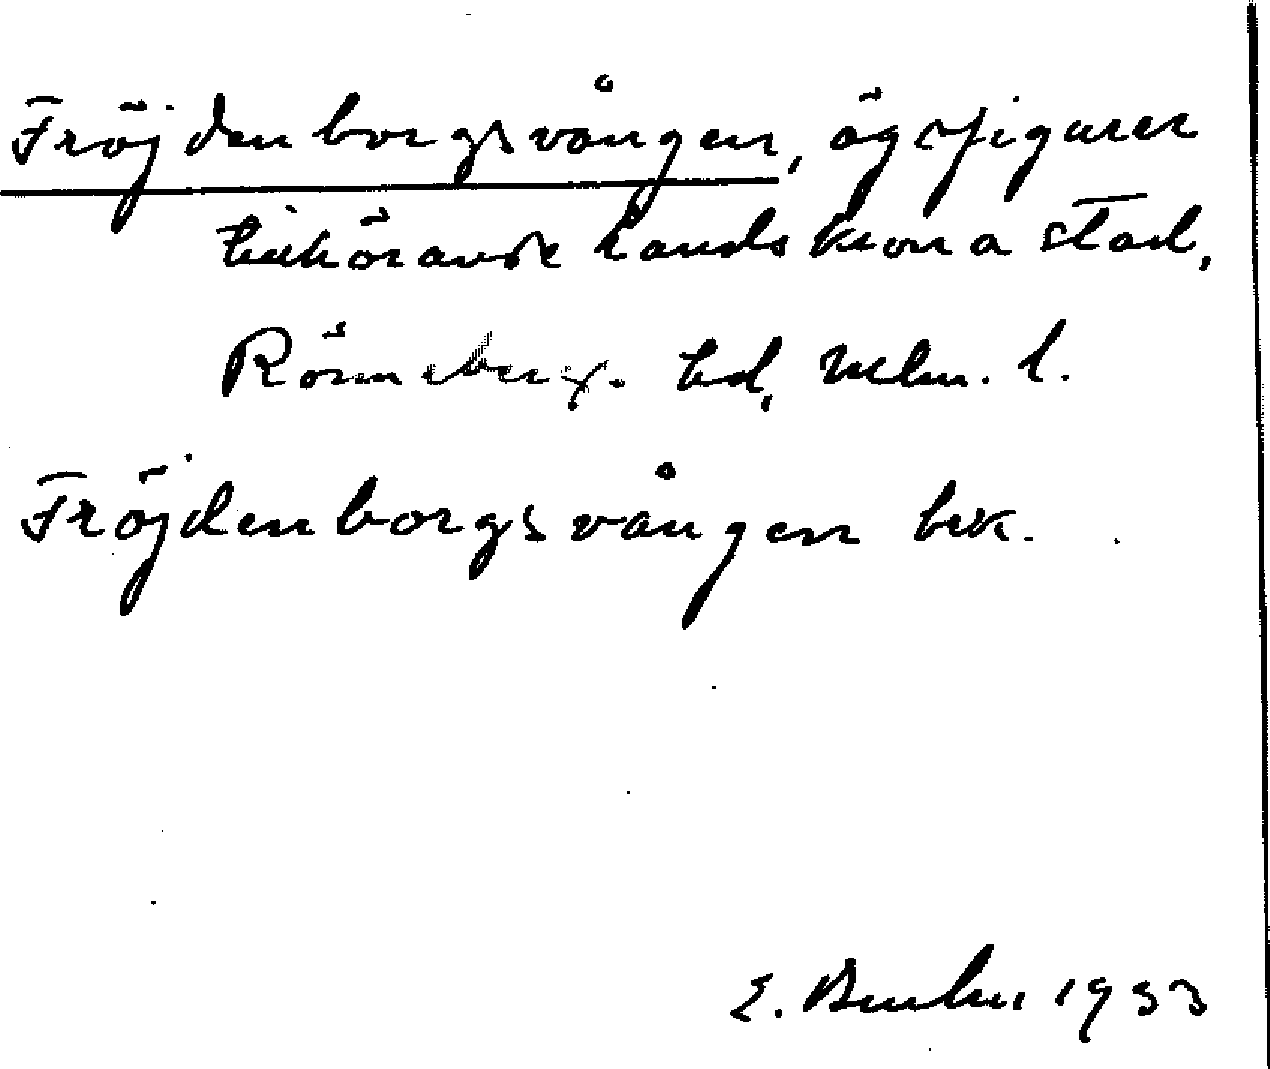 Fröjdenborgsvången, ägofigurer
tillhörande Landskrona stad,
Rönneberg. hd, Mlm. l.
Fröjdenborgsvången bek.
E. 1933